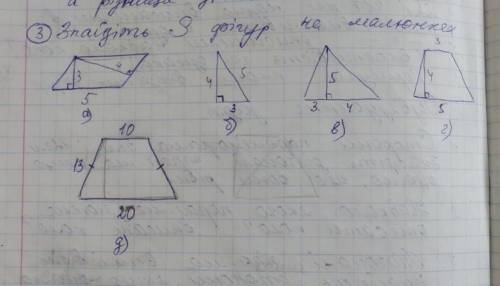 а різниця
③ Знайдіть S фігур на малюнках
3 4
5
а)
4 5
3
б)
5
3 4
в)
3
4
5
г)
10
13
20
д)